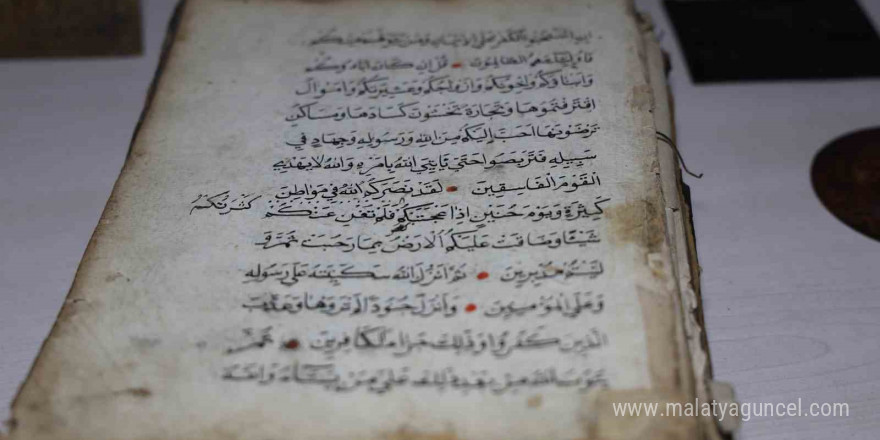 ان استحبوا الكفر على الايمان ومن يتولهم منكم
فاولئك هم الظالمون قل ان كان اباؤكم
وابناؤكم واخوانكم وازواجكم وعشيرتكم واموال
اقترفتموها وتجارة تخشون كسادها ومساكن
ترضونها احب اليكم من الله ورسوله وجهاد في
سبيله فتربصوا حتى ياتي الله بامره والله لا يهدي
القوم الفاسقين لقد نصركم الله في مواطن
كثيرة ويوم حنين اذ اعجبتكم فلم تغن عنكم
كثرتكم
شيئا وضاقت عليكم الارض بما رحبت ثم و
ليتم مدبرين ثم انزل الله سكينته على رسوله
وعلى المؤمنين وانزل جنودا لم تروها وعذب
الذين كفروا وذلك جزاء الكافرين ثم
يتوب الله من بعد ذلك على من يشاء والله
www.malatyaguncel.com